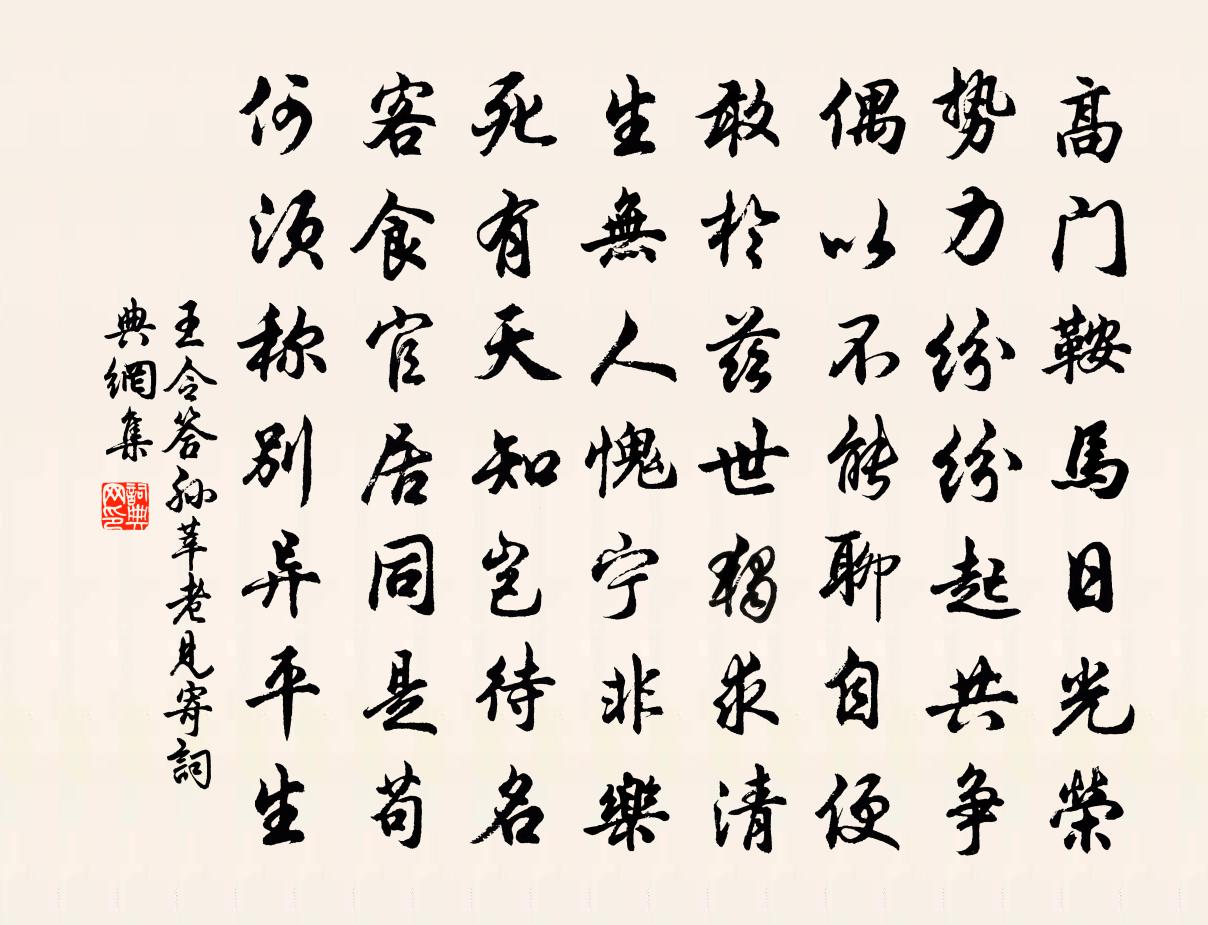 高门鞍馬日光榮
势力纷纷起共争
偶以不能聊自便
敢於兹世独求清
生無人愧宁非樂
死有天知岂待名
客食官居同是苟
何须称别异平生
王令答孙莘老見寄詞
典網集
詞典
网印